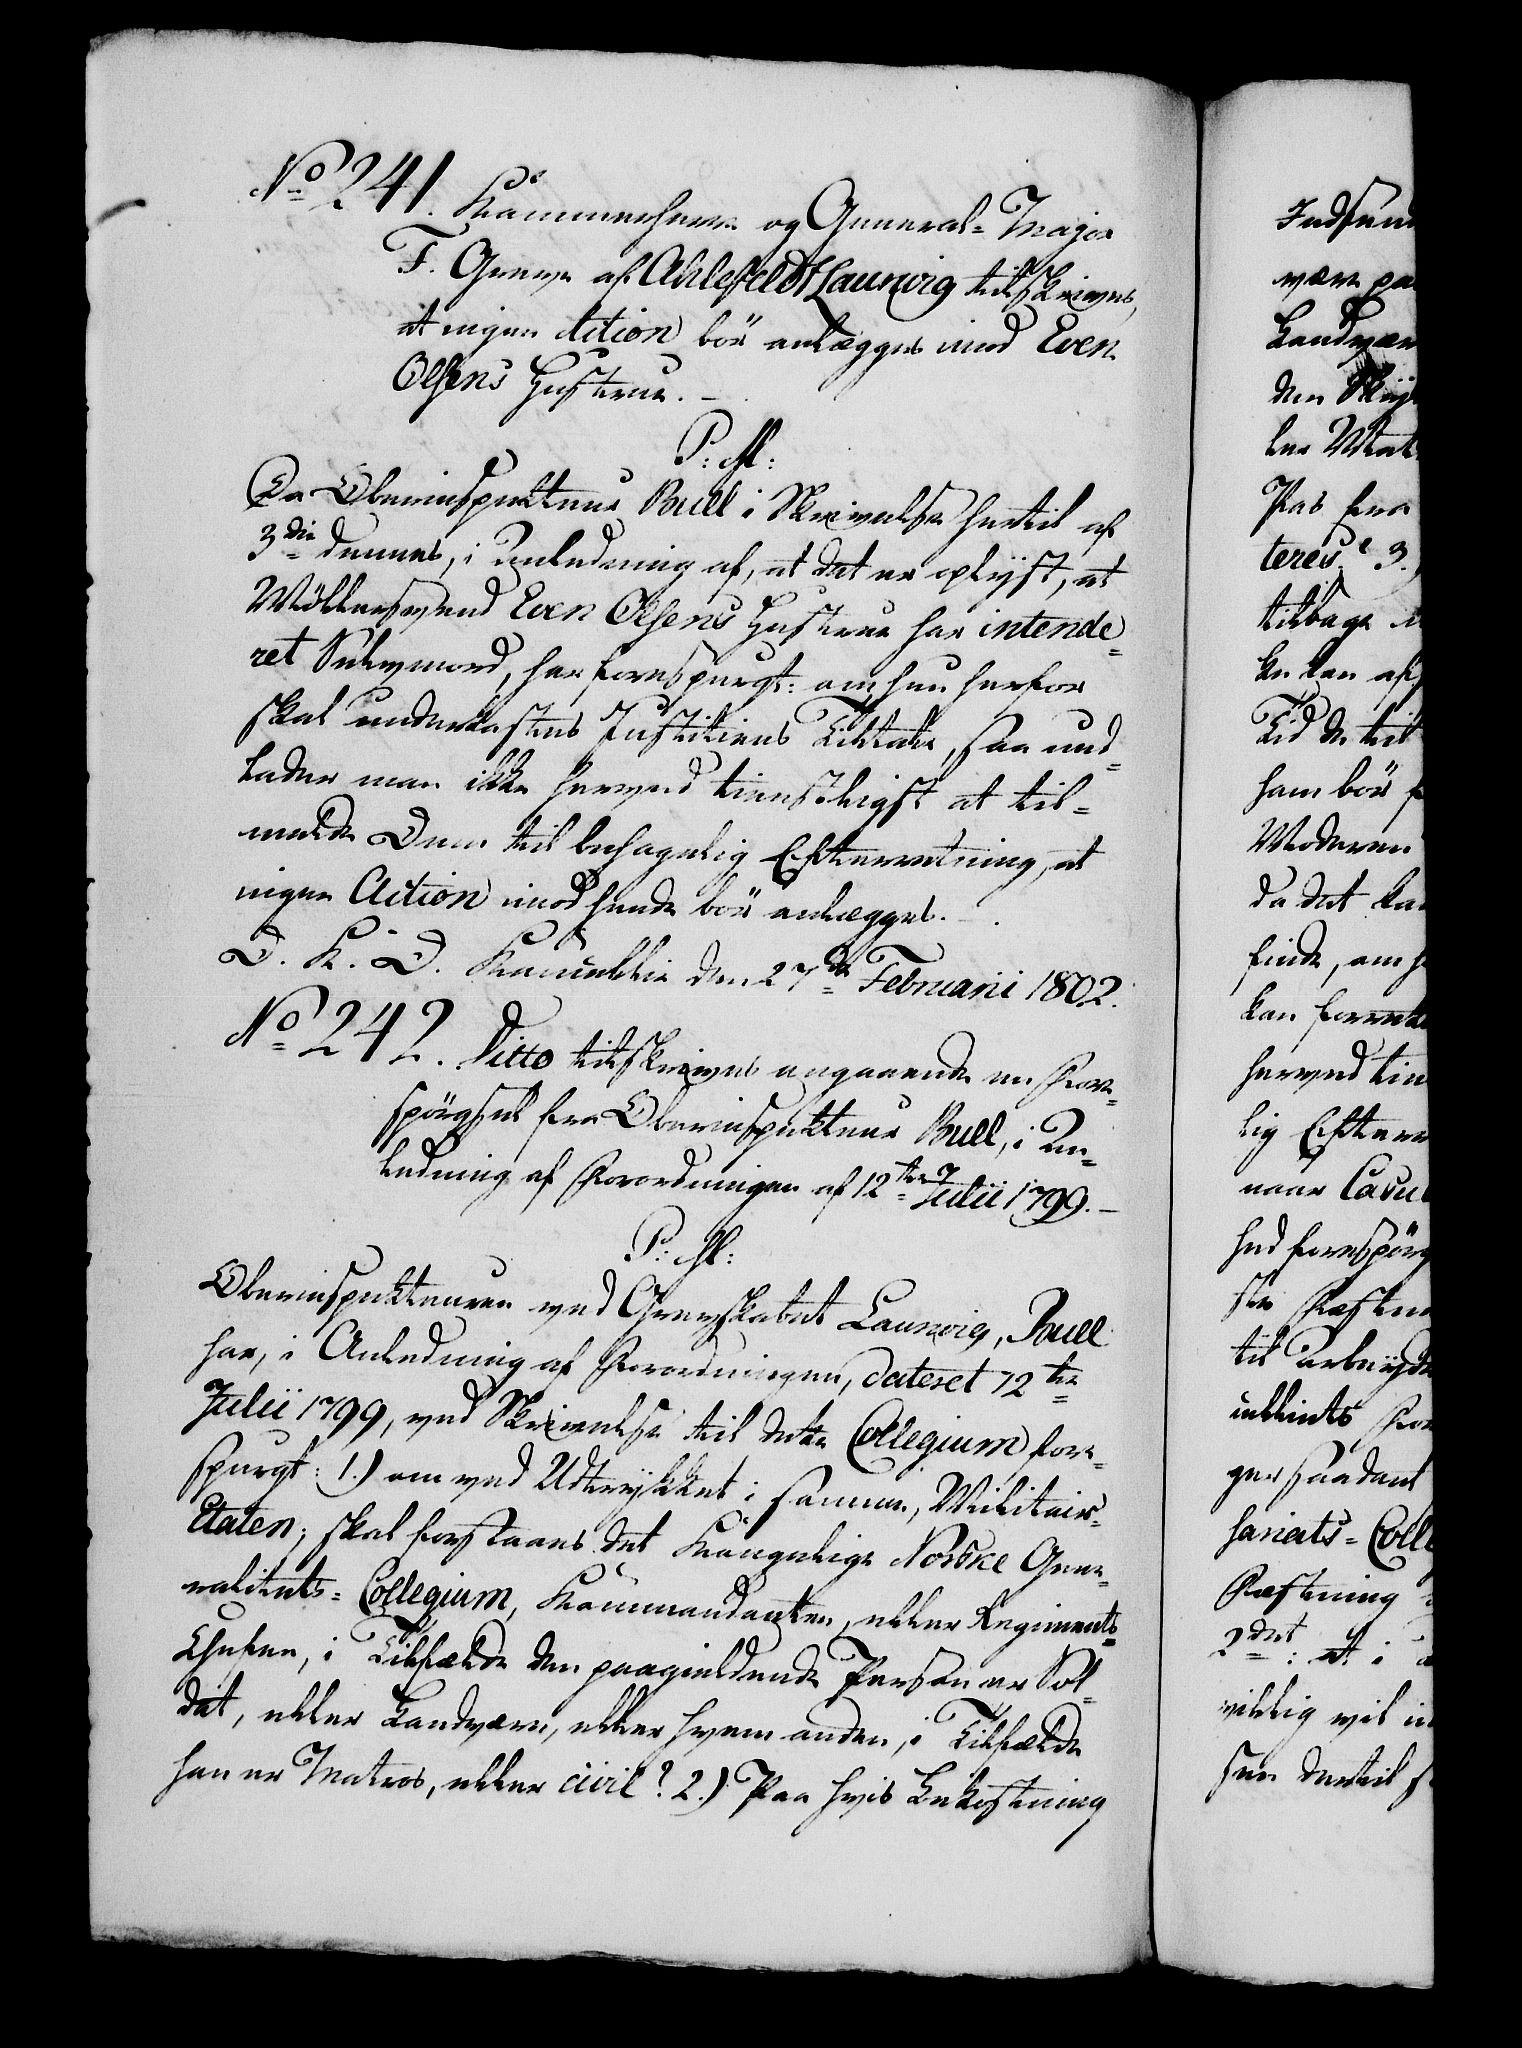 No 241. Kammerherre og General-Major
F. Greve af Ahlefeldt Laurwig tilskrives,
at ingen Action bör anlægges imod Even
Olsens Hustrue. —
P: M:
Da Oberinspekteur Bull i Skrivelse hertil af
3die dennes, i Anledning af, at det er oplyst, at
Möllersvend Even Olsens Hustrue har intende=
ret Selvmord, har forespurgt: om hun herfor
skal underkastes Justitiens Tiltale, saa und=
lader man ikke herved tienstligst at til=
melde Dem til behagelig Efterretning, at
ingen Action imod hende bör anlægges. —.
D. K. D. Kancellie den 27de Februarii 1802.
No 242. Ditto tilskrives angaaende en Fore=
spörgsel fra Oberinspekteur Bull, i An=
ledning af Forordningen af 12te Julii 1799. —
P: M:
Oberinspekteuren ved Grevskabet Laurvig, Bull
har, i Anledning af Forordningen, dateret 12te
Julii 1799, ved Skrivelse til dette Collegium fore=
spurgt: 1.) om ved Udtrykket i samme, Militair=
Etaten; skal forstaaes det Kongelige Norske Gene=
ralitets=Collegium, Kommandanten, eller Regiments=
Chefen, i Tilfælde den paagieldende Person er Sol=
dat, eller Landværn, eller hvem anden, i Tilfælde
han er Matros, eller civil? 2.) Paa hvis Bekostning
Indsend
være pa
Landvær
den
ler
Pas fra
teres? 3.)
tilbage
kan af
Tid de til
ham bör f
Moderen
da det kan
finde, om h
kan forrette
herved tien
lig Efterr
naar Casu
hed forespörg
til Arbeyde
ger saadant
sariats=Coll
Fæstning
2det: at i
villig vil in
sen dertil